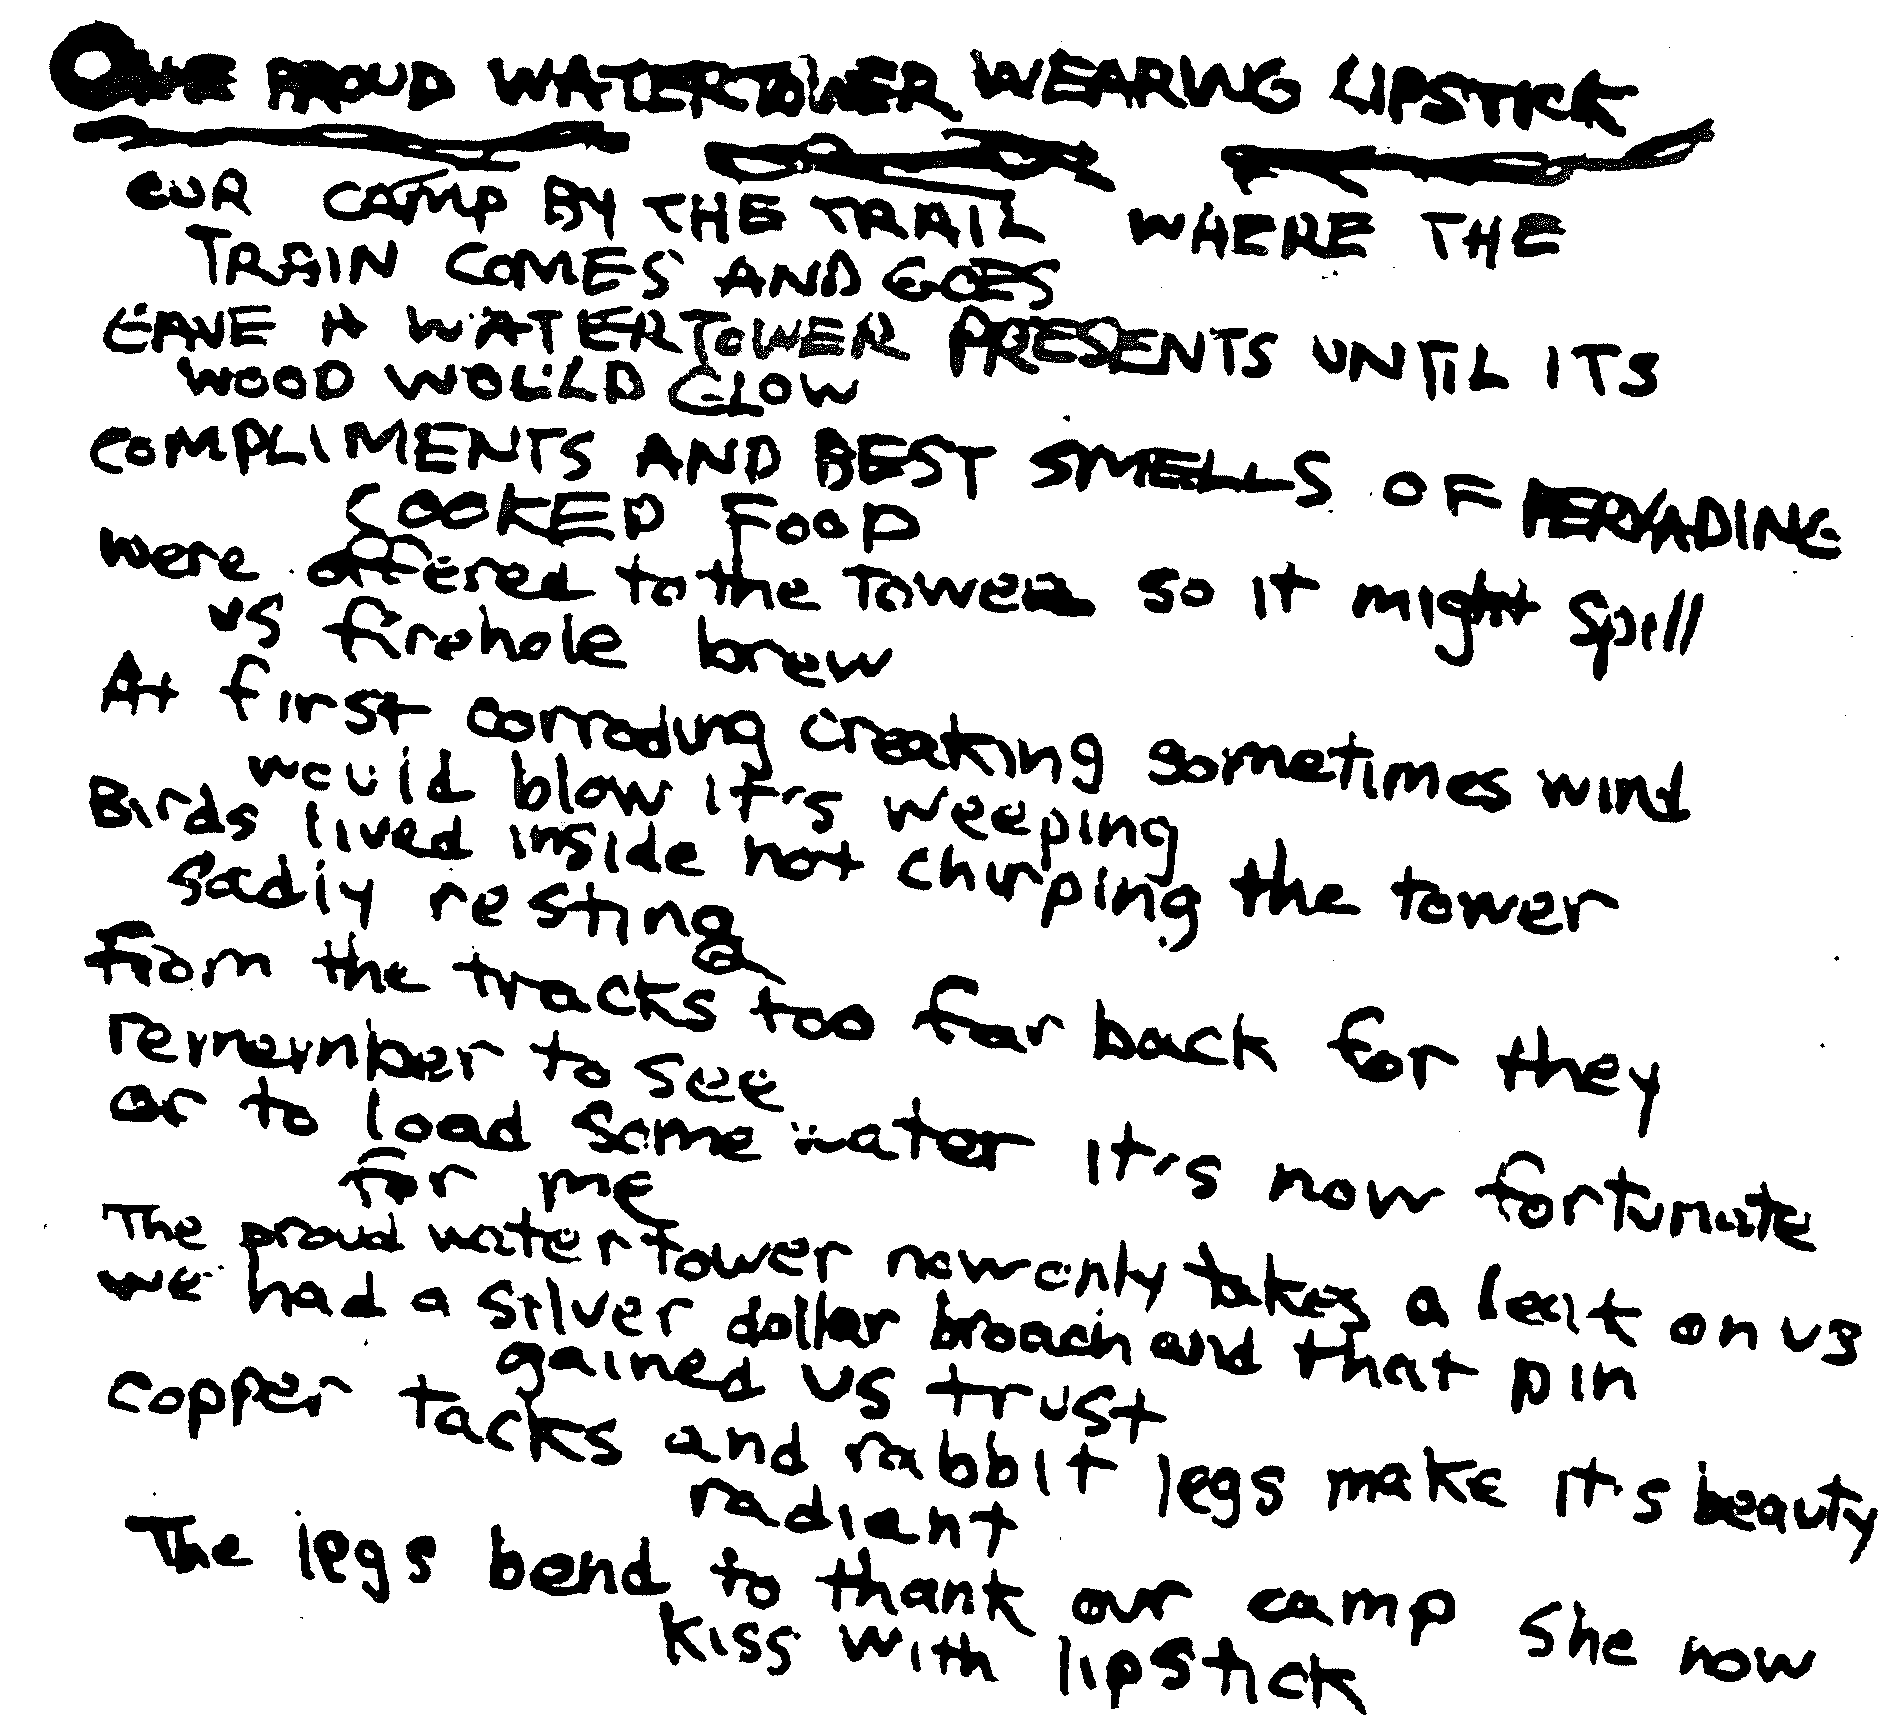 ONE PROUD WATERTOWER WEARING LIPSTICK
OUR CAMP BY THE TRAIL WHERE THE
TRAIN COMES AND GOES
GAVE A WATERTOWER PRESENTS UNTIL ITS
WOOD WOULD GLOW
COMPLIMENTS AND BEST SMELLS OF PERVADING
COOKED FOOD
were offered to the Tower so it might spill
us firehole brew
At first corroding creaking sometimes wind
would blow it's weeping
Birds lived inside not chirping the tower
sadly resting
From the tracks too far back for they
remember to see
or to load some water it's now fortunate
for me
The proud water tower now only takes a leak on us
we had a silver dollar broach and that pin
gained us trust
Copper tacks and rabbit legs make it's beauty
radiant
The legs bend to thank our camp She now
kiss with lipstick